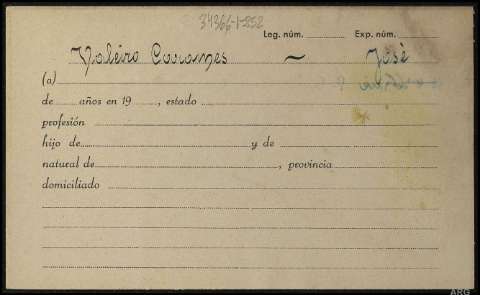 34366-1-852
Leg. núm. Exp. núm.
Valeiro Caramés ~ José
(a)
de años en 19 , estado
profesión
hijo de y de
natural de , provincia
domiciliado
ARG